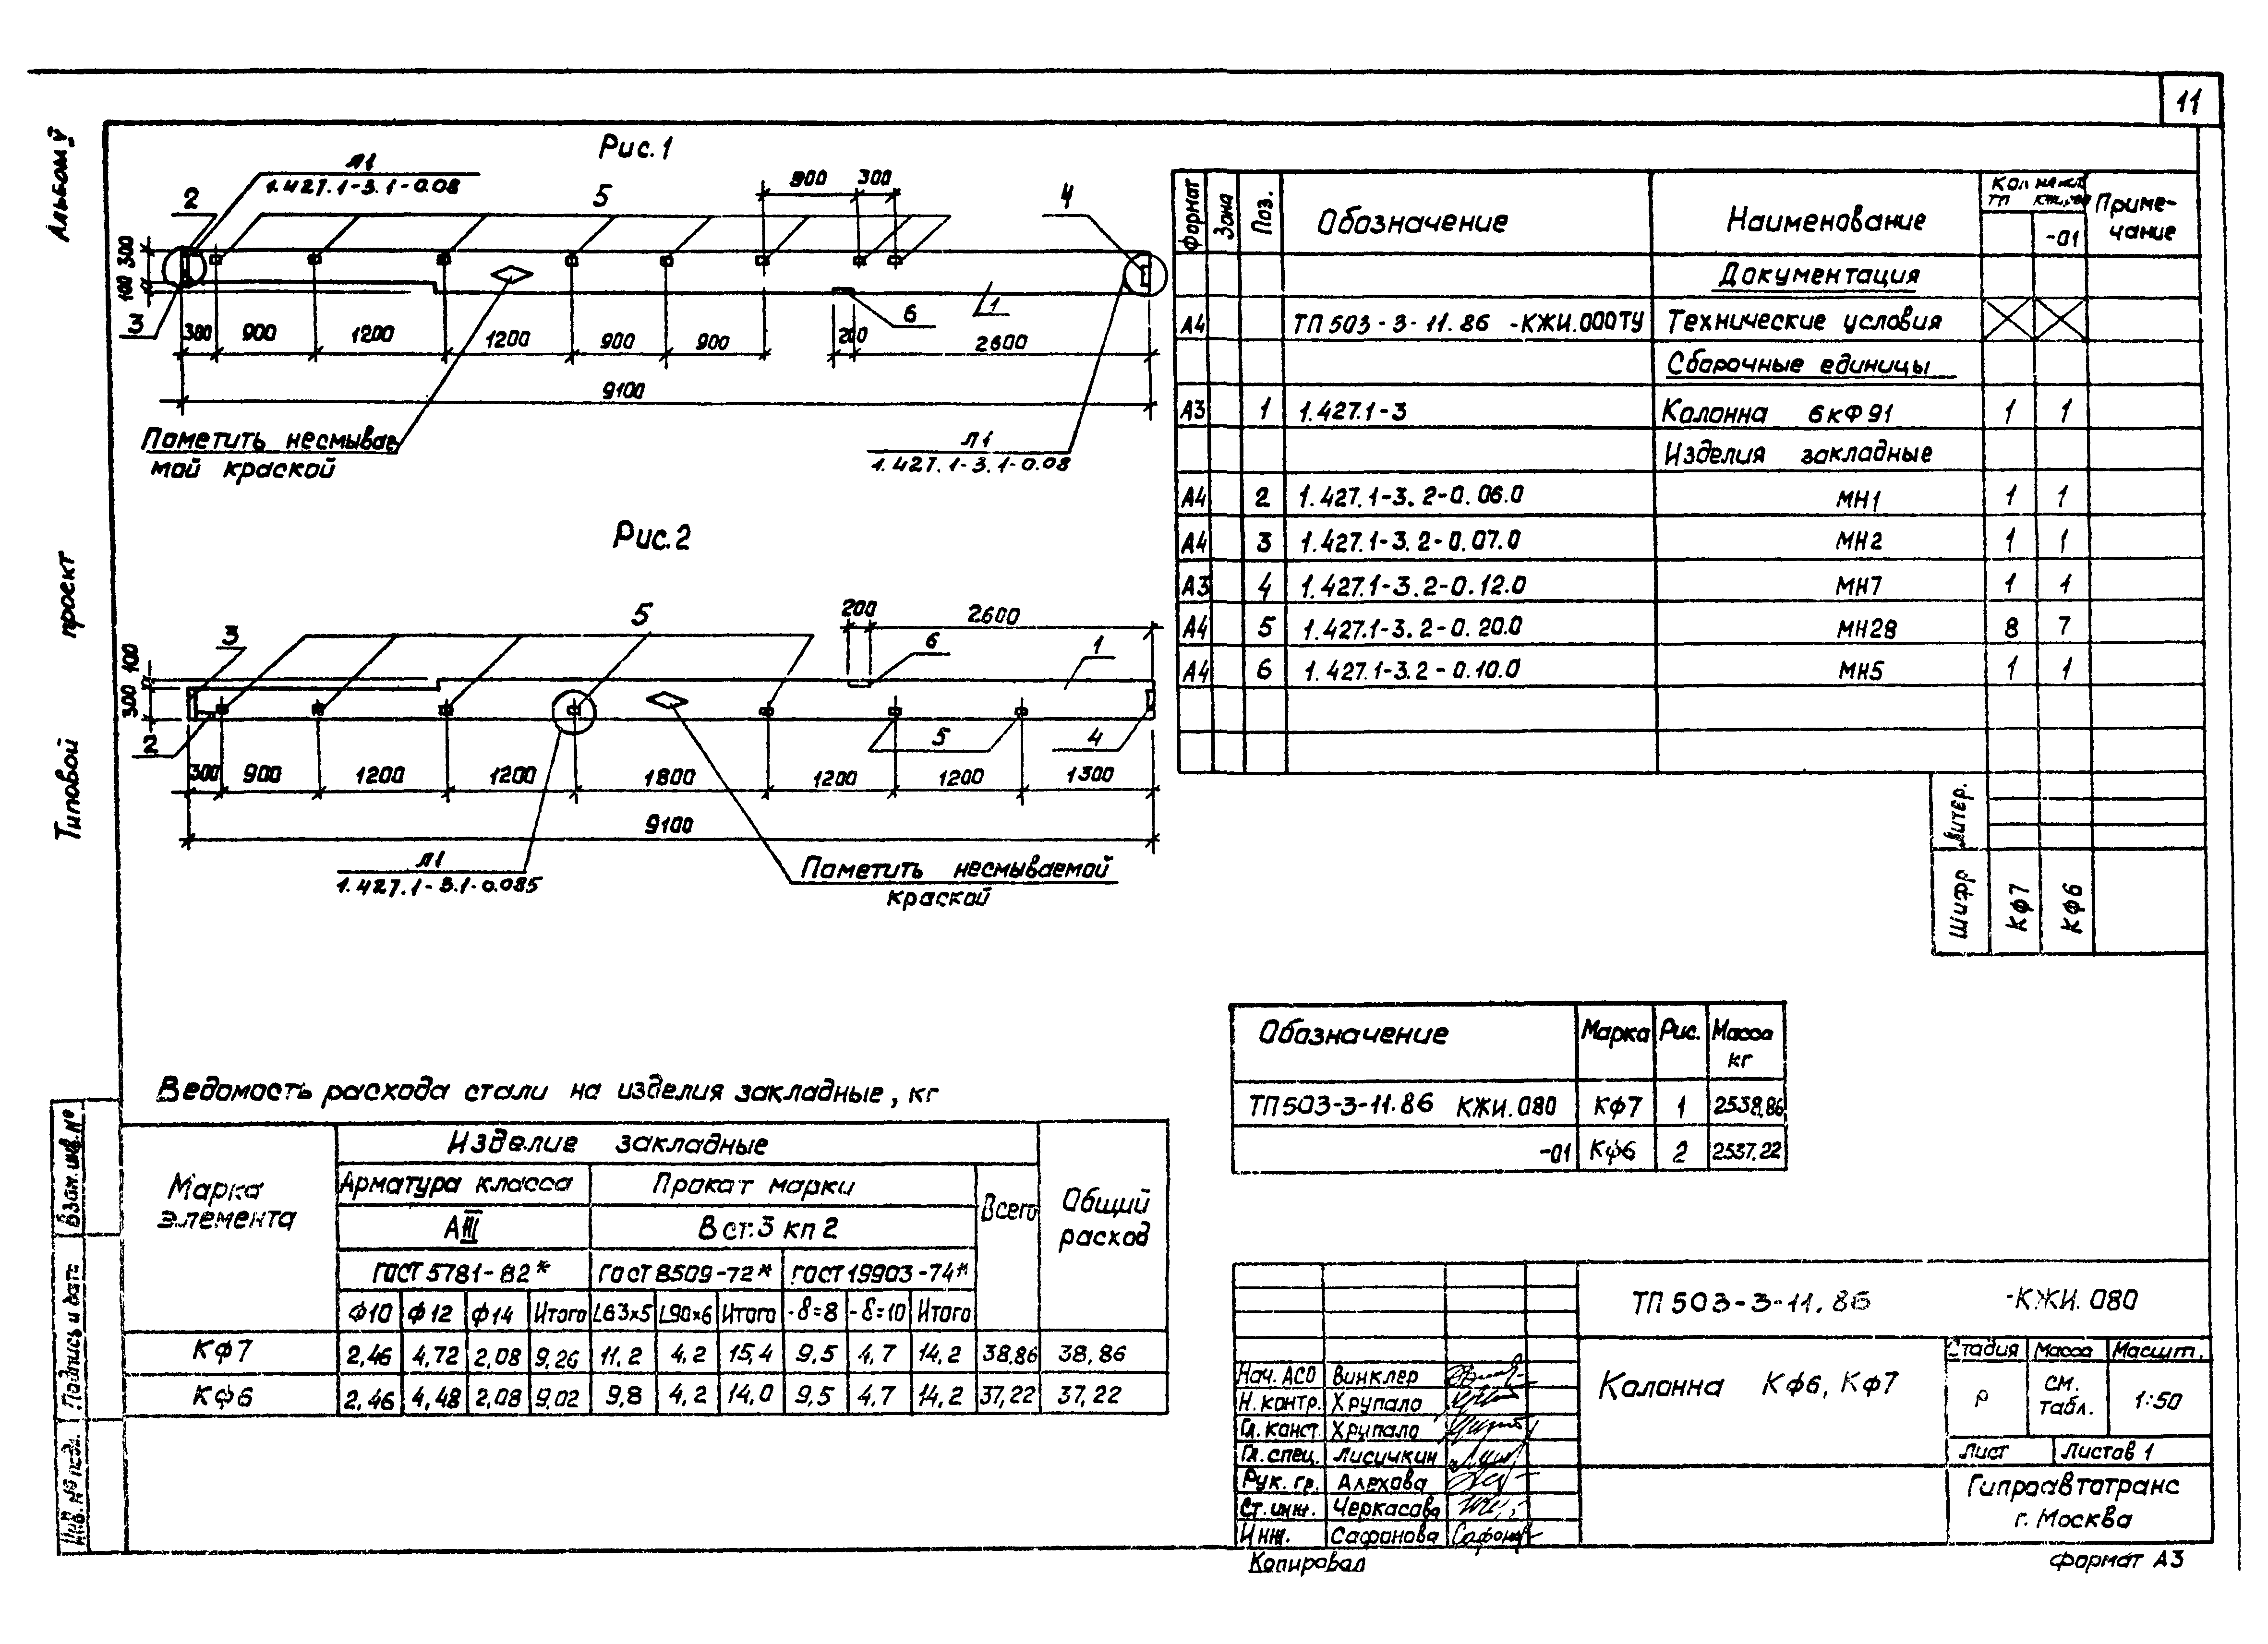 11
Альбом V
Типовой проект
Рис.1
Л1
1.427.1-3.1-0.08
2
5
900
300
4
300
100
3
6
1
300
900
1200
1200
900
900
200
2600
9100
Пометить несмывае
мой краской
Л1
1.427.1-3.1-0.08
Рис.2
200
2600
3
5
6
1
100
300
2
5
4
300
900
1200
1200
1800
1200
1200
1300
9100
Л1
1.427.1-3.1-0.085
Пометить несмываемой
краской
Формат Зона Поз. Обозначение Наименование Кол на исп. Приме-
чание
ТП
-01
Документация
А4 ТП 503-3-11.86 -КЖИ.000ТУ Технические условия
Сборочные единицы
А3 1 1.427.1-3 Колонна 6кФ91 1 1
Изделия закладные
А4 2 1.427.1-3.2-0.06.0 МН1 1 1
А4 3 1.427.1-3.2-0.07.0 МН2 1 1
А3 4 1.427.1-3.2-0.12.0 МН7 1 1
А4 5 1.427.1-3.2-0.20.0 МН28 8 7
А4 6 1.427.1-3.2-0.10.0 МН5 1 1
Литер.
Шифр Кф7 Кф6
Обозначение Марка Рис. Масса
кг
ТП503-3-11.86 КЖИ.080 Кф7 1 2538,86
-01 Кф6 2 2537,22
Ведомость расхода стали на изделия закладные, кг
Марка
элемента
Изделие закладные
Общий
расход
Арматура класса Прокат марки Всего
АIII Вст.3 кп2
ГОСТ 5781-82* ГОСТ 8509-72* ГОСТ 19903-74*
Ф10 Ф12 Ф14 Итого L63х5 L90х6 Итого -δ=8 -δ=10 Итого
Кф7 2,46 4,72 2,08 9,26 11,2 4,2 15,4 9,5 4,7 14,2 38,86 38,86
Кф6 2,46 4,48 2,08 9,02 9,8 4,2 14,0 9,5 4,7 14,2 37,22 37,22
Взам. инв. №
Подпись и дата
Инв. № подл.
ТП 503-3-11.86 -КЖИ.080
Колонна Кф6, Кф7
Стадия Масса Масшт.
Р см.
табл. 1:50
Лист Листов 1
Гипроавтотранс
г. Москва
Нач. АСО Винклер
Н. контр. Хрупало
Гл. конст. Хрупало
Гл. спец. Лисичкин
Рук. гр. Алехова
Ст. инж. Черкасова
Инж. Сафонова
Копировал
Формат А3